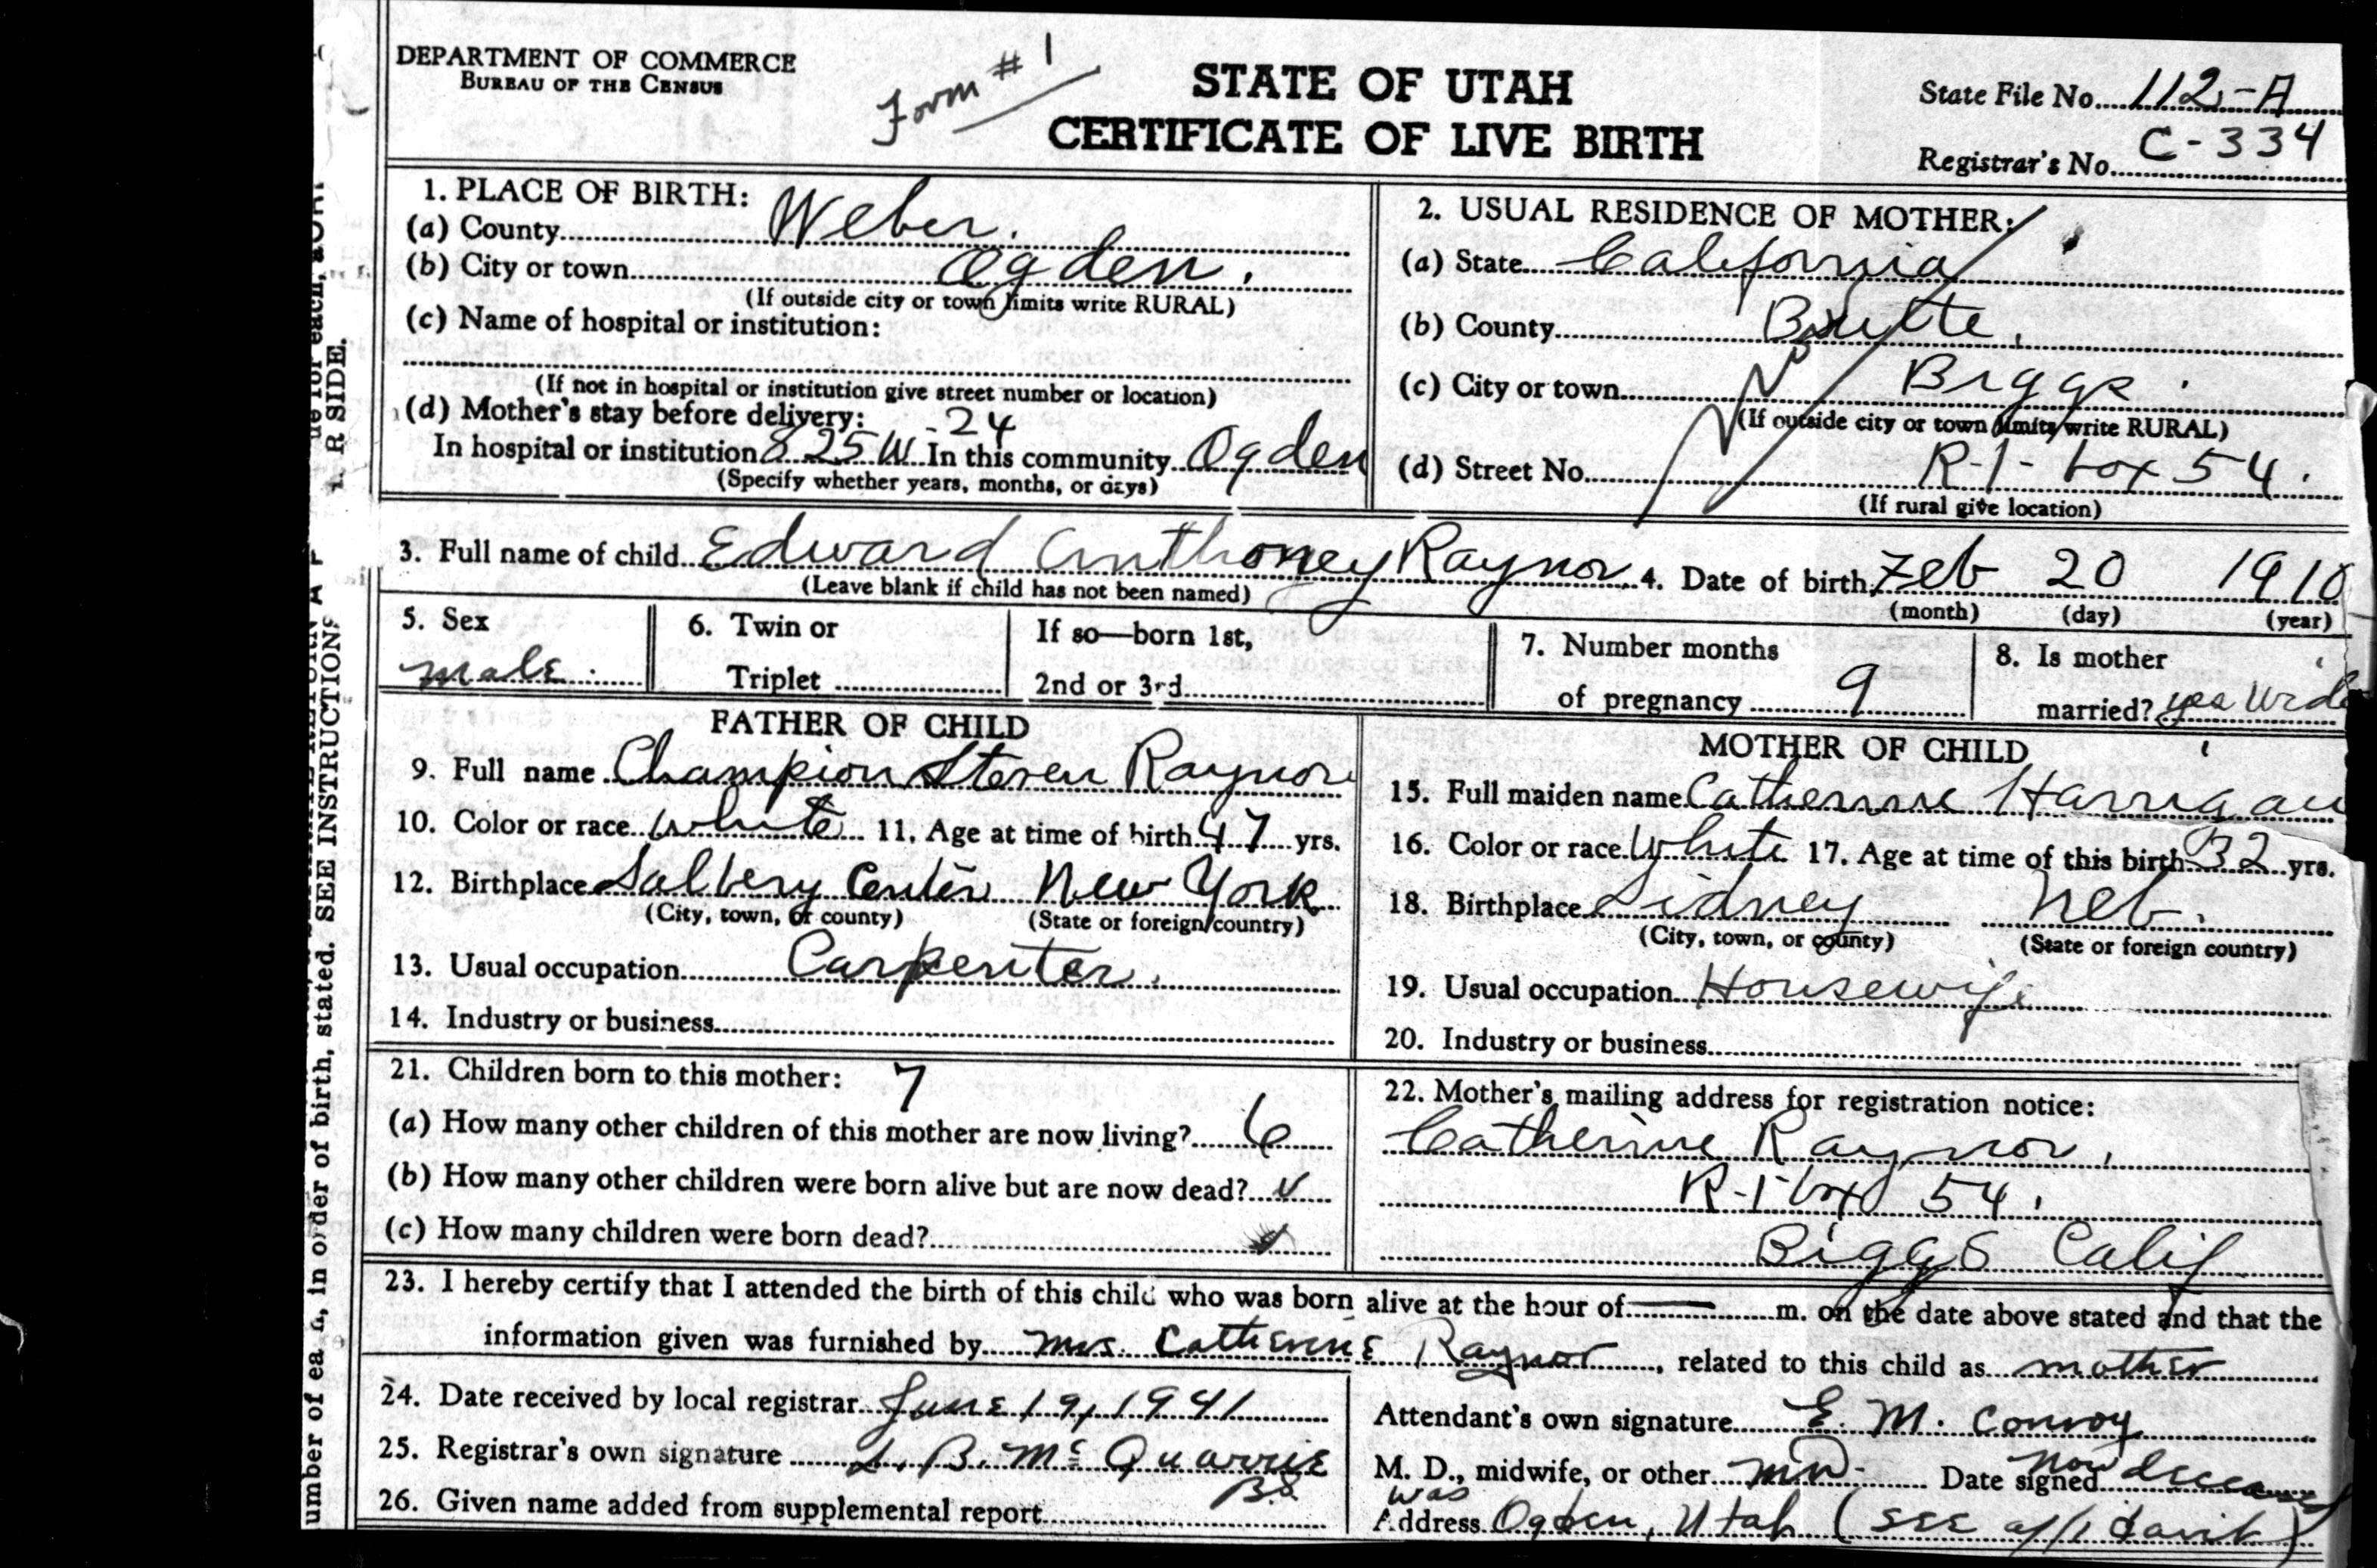 DEPARTMENT OF COMMERCE
BUREAU OF THE CENSUS
Form # 1
STATE OF UTAH
CERTIFICATE OF LIVE BIRTH
State File No. 112-A
Registrar's No. C-334
1. PLACE OF BIRTH:
(a) County Weber.
(b) City or town Ogden.
(If outside city or town limits write RURAL)
(c) Name of hospital or institution:
(If not in hospital or institution give street number or location)
(d) Mother's stay before delivery: -24
In hospital or institution 825 W In this community Ogden
(Specify whether years, months, or days)
2. USUAL RESIDENCE OF MOTHER:
(a) State California
(b) County Butte.
(c) City or town Biggs.
(If outside city or town limits write RURAL)
(d) Street No. R-1- box 54.
(If rural give location)
3. Full name of child Edward Anthoney Raynor 4. Date of birth Feb 20 1910
(Leave blank if child has not been named) (month) (day) (year)
5. Sex male.
6. Twin or
Triplet
If so—born 1st,
2nd or 3rd
7. Number months
of pregnancy 9
8. Is mother
married? yes
FATHER OF CHILD
9. Full name Champion Steven Raynor
10. Color or race white 11. Age at time of birth 47 yrs.
12. Birthplace Salbery Center New York
(City, town, or county) (State or foreign country)
13. Usual occupation Carpenter.
14. Industry or business
MOTHER OF CHILD
15. Full maiden name Catherine Harrigan
16. Color or race White 17. Age at time of this birth 32 yrs.
18. Birthplace Sidney Neb.
(City, town, or county) (State or foreign country)
19. Usual occupation Housewife
20. Industry or business
21. Children born to this mother: 7
(a) How many other children of this mother are now living? 6
(b) How many other children were born alive but are now dead?
(c) How many children were born dead?
22. Mother's mailing address for registration notice:
Catherine Raynor,
R-1-box 54.
Biggs Calif
23. I hereby certify that I attended the birth of this child who was born alive at the hour of —— m. on the date above stated and that the
information given was furnished by Mrs. Catherine Raynor, related to this child as mother
24. Date received by local registrar June 19, 1941
25. Registrar's own signature L. B. McQuarrie
B.S.
26. Given name added from supplemental report
Attendant's own signature E. M. Conroy
M. D., midwife, or other MD- Date signed now deceased
was
Address Ogden, Utah (see affidavit)
SEE INSTRUCTIONS
in order of birth, stated.
R SIDE.